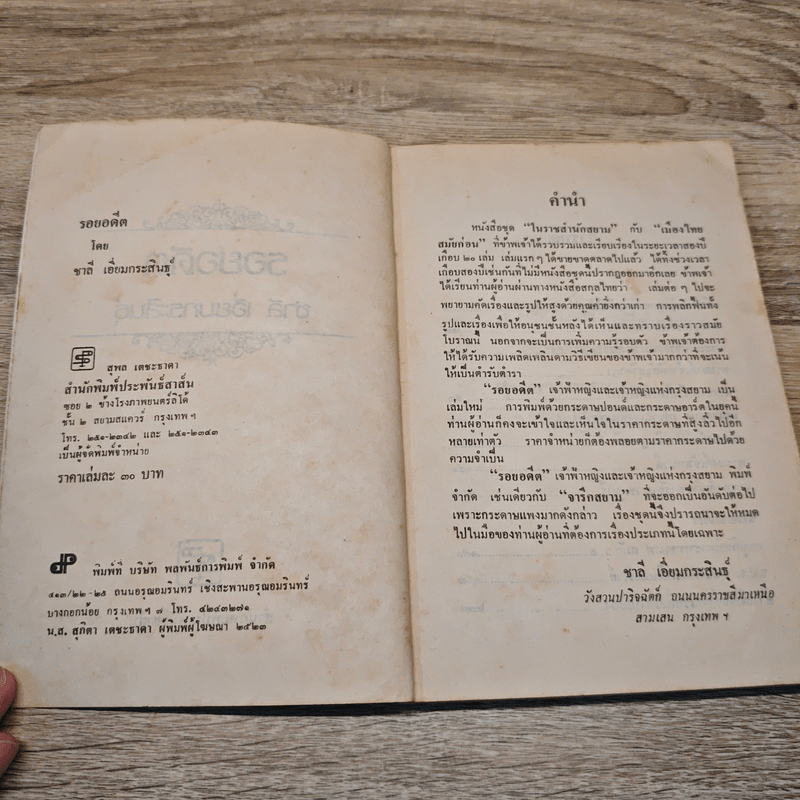 รอยอดีต
โดย
ชาลี เอี่ยมกระสินธุ์
สุพล เตชะธาดา
สำนักพิมพ์ประพันธ์สาส์น
ซอย ๒ ข้างโรงภาพยนตร์ลิโด้
ชั้น ๒ สยามสแควร์ กรุงเทพ ฯ
โทร. ๒๕๑-๒๓๔๒ และ ๒๕๑-๒๓๔๓
เป็นผู้จัดพิมพ์จำหน่าย
ราคาเล่มละ ๓๐ บาท
พิมพ์ที่ บริษัท พลพันธ์การพิมพ์ จำกัด
๔๑๓/๒๒-๒๕ ถนนอรุณอมรินทร์ เชิงสะพานอรุณอมรินทร์
บางกอกน้อย กรุงเทพ ฯ ๗ โทร. ๔๒๔๓๒๗๑
น.ส. สุภิตา เตชะธาดา ผู้พิมพ์ผู้โฆษณา ๒๕๒๓
คำนำ
หนังสือชุด "ในราชสำนักสยาม" กับ "เมืองไทย
สมัยก่อน" ที่ข้าพเจ้าได้รวบรวมและเรียบเรียงในระยะเวลาสองปี
เกือบ ๒๐ เล่ม เล่มแรกๆ ได้ขายขาดตลาดไปแล้ว ได้ทิ้งช่วงเวลา
เกือบสองปีเช่นกันที่ไม่มีหนังสือชุดนี้ปรากฏออกมาอีกเลย ข้าพเจ้า
ได้เรียนท่านผู้อ่านผ่านทางหนังสือสกุลไทยว่า เล่มต่อๆ ไปจะ
พยายามคัดเรื่องและรูปให้สูงด้วยคุณค่ายิ่งกว่าเก่า การพลิกฟื้นทั้ง
รูปและเรื่องเพื่อให้อนุชนชั้นหลังได้เห็นและทราบเรื่องราวสมัย
โบราณนี้ นอกจากจะเป็นการเพิ่มความรู้รอบตัว ข้าพเจ้าต้องการ
ให้ได้รับความเพลิดเพลินตามวิธีเขียนของข้าพเจ้ามากกว่าที่จะเน้น
ให้เป็นตำรับตำรา
"รอยอดีต" เจ้าฟ้าหญิงและเจ้าหญิงแห่งกรุงสยาม เป็น
เล่มใหม่ การพิมพ์ด้วยกระดาษปอนด์และกระดาษอาร์ตในยุคนี้
ท่านผู้อ่านก็คงจะเข้าใจและเห็นใจในราคากระดาษที่สูงลิ่วไปอีก
หลายเท่าตัว ราคาจำหน่ายก็ต้องพลอยตามราคากระดาษไปด้วย
ความจำเป็น
"รอยอดีต" เจ้าฟ้าหญิงและเจ้าหญิงแห่งกรุงสยาม พิมพ์
จำกัด เช่นเดียวกับ "จารึกสยาม" ที่จะออกเป็นอันดับต่อไป
เพราะกระดาษแพงมากดังกล่าว เรื่องชุดนี้จึงปรารถนาจะให้หมด
ไปในมือของท่านผู้อ่านที่ต้องการเรื่องประเภทนี้โดยเฉพาะ
ชาลี เอี่ยมกระสินธุ์
วังสวนปาริจฉัตก์ ถนนนครราชสีมาเหนือ
สามเสน กรุงเทพ ฯ